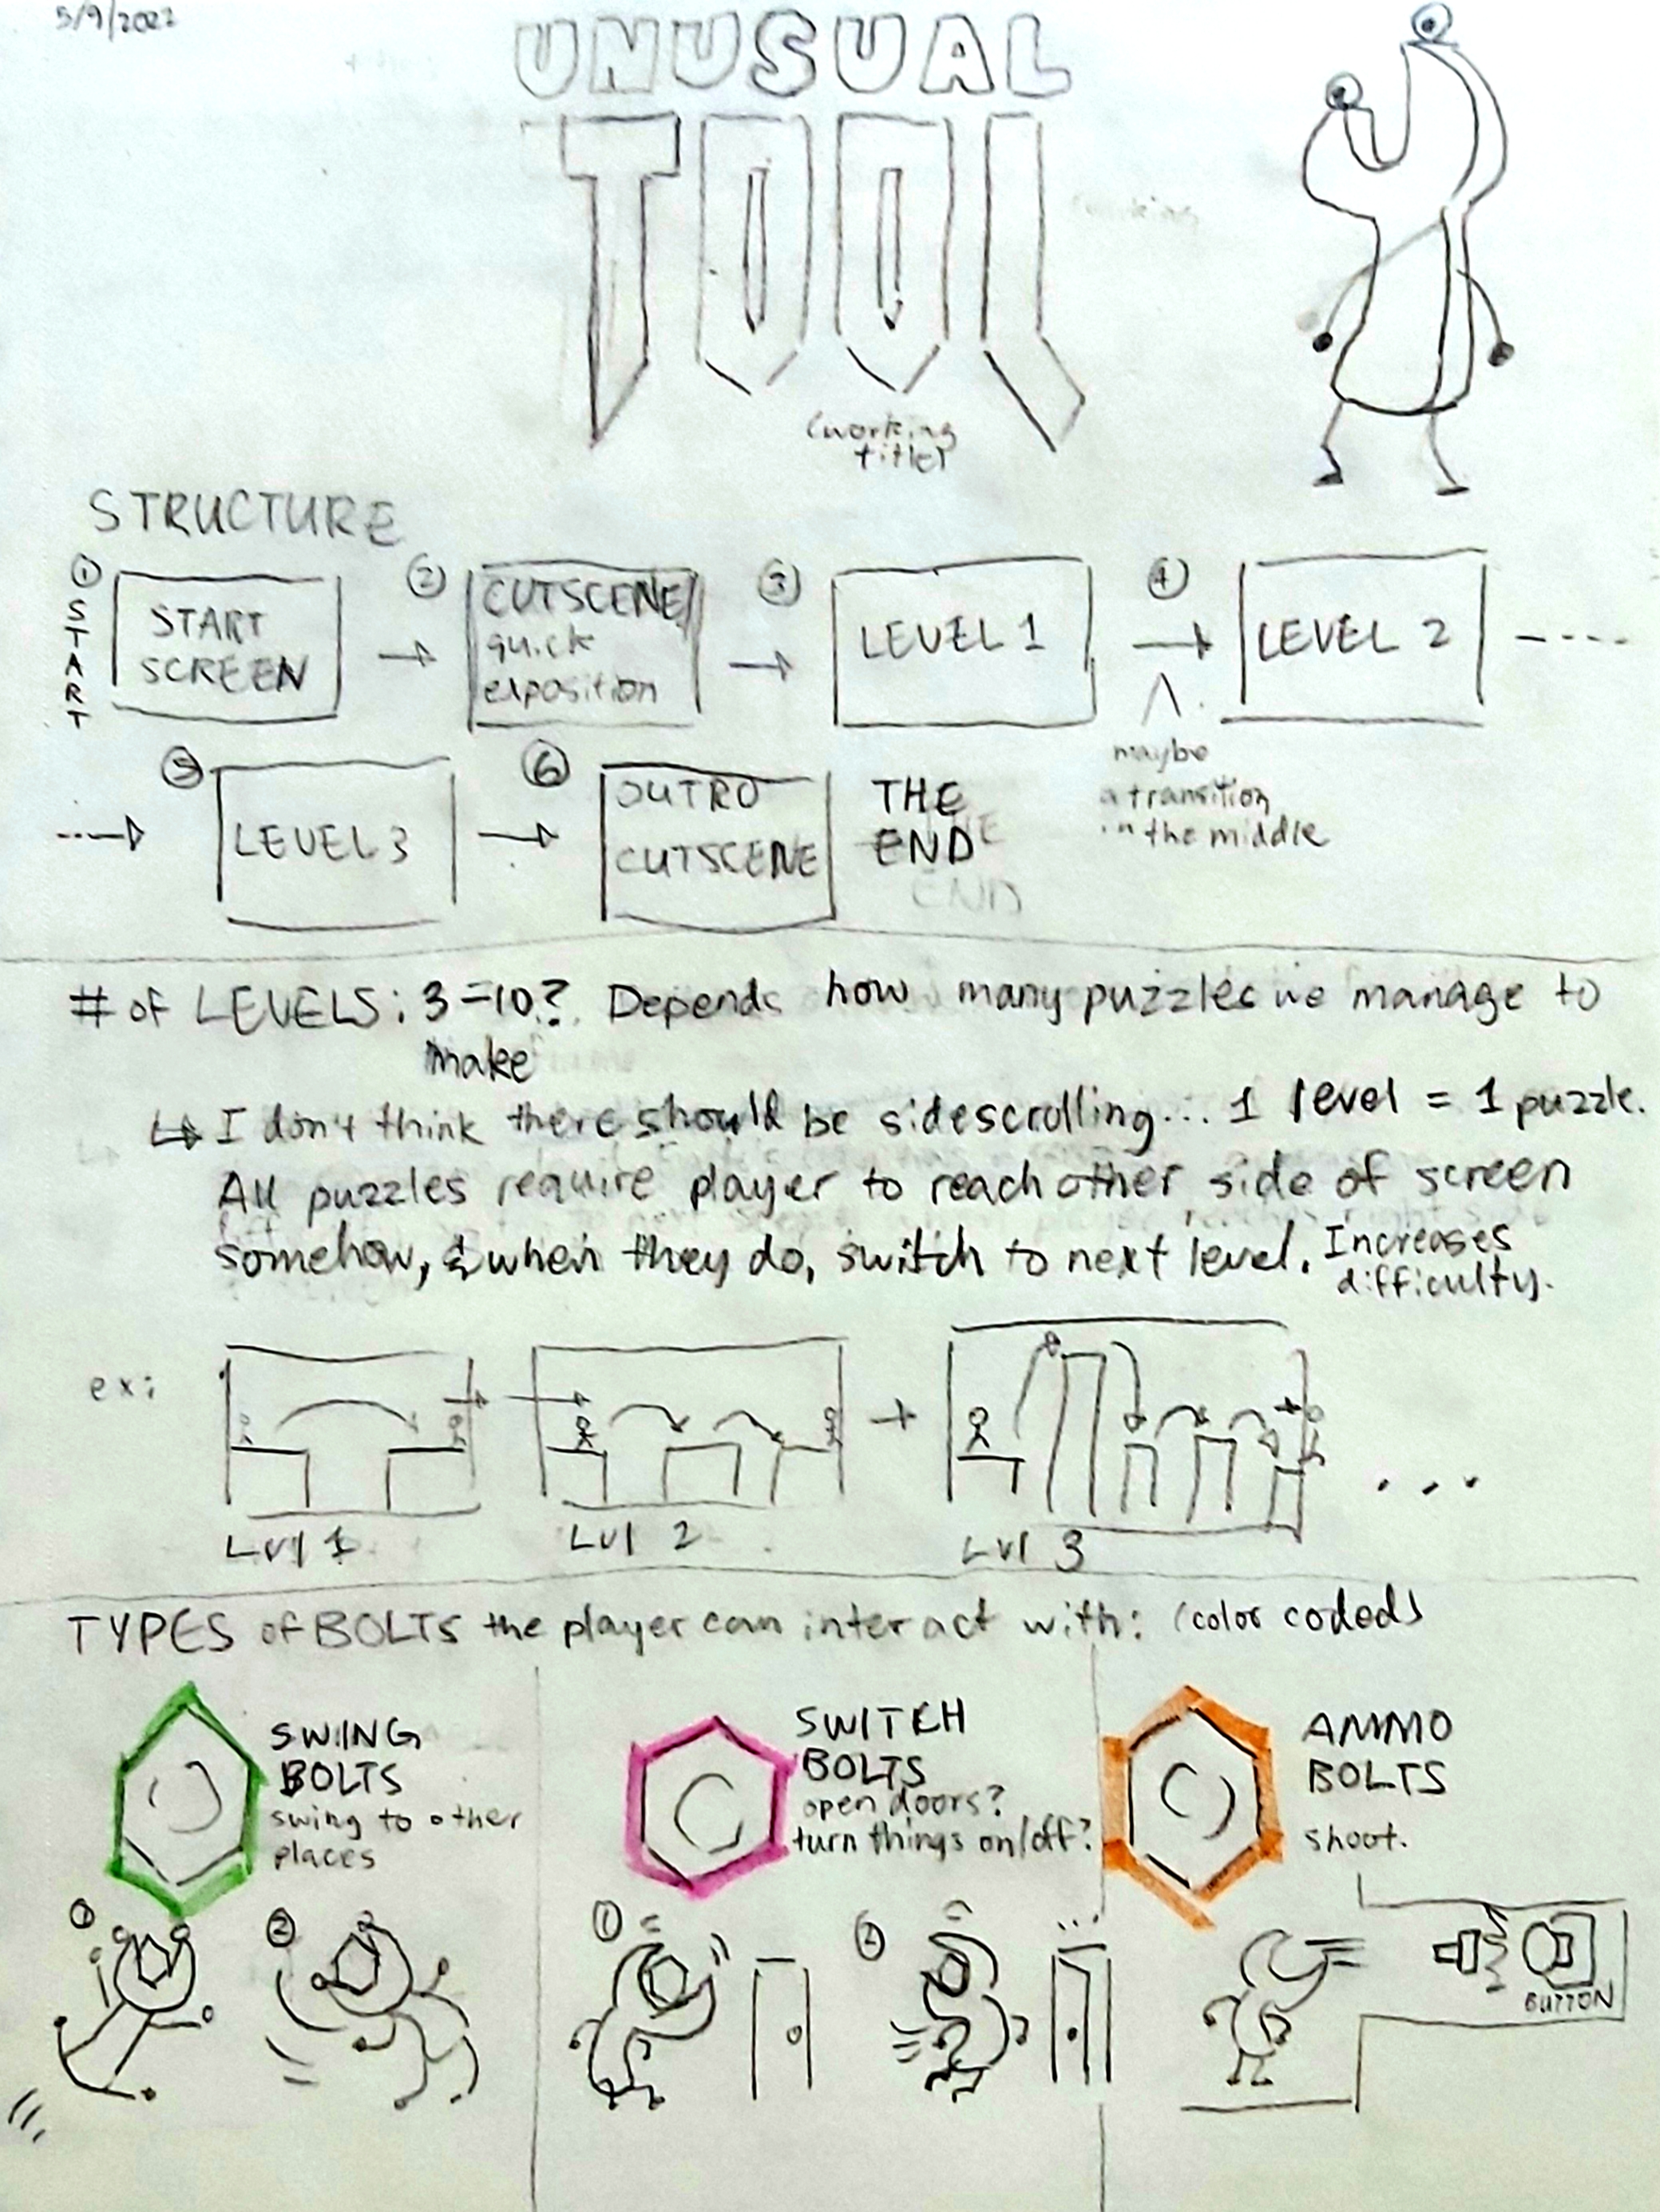 5/9/2022
UNUSUAL
TOOL
(working
title)
STRUCTURE
① START
START
SCREEN
②
CUTSCENE
quick
exposition
③
LEVEL 1
④
LEVEL 2
maybe
a transition
in the middle
⑤
LEVEL 3
⑥
OUTRO
CUTSCENE
THE
END
# of LEVELS: 3-10? Depends how many puzzles we manage to
make
↳ I don't think there should be sidescrolling... 1 level = 1 puzzle.
All puzzles require player to reach other side of screen
somehow, & when they do, switch to next level. Increases
difficulty.
ex:
Lvl 1
Lvl 2
Lvl 3
...
TYPES of BOLTS the player can interact with: (color coded)
SWING
BOLTS
swing to other
places
① ②
SWITCH
BOLTS
open doors?
turn things on/off?
① ②
AMMO
BOLTS
shoot.
BUTTON